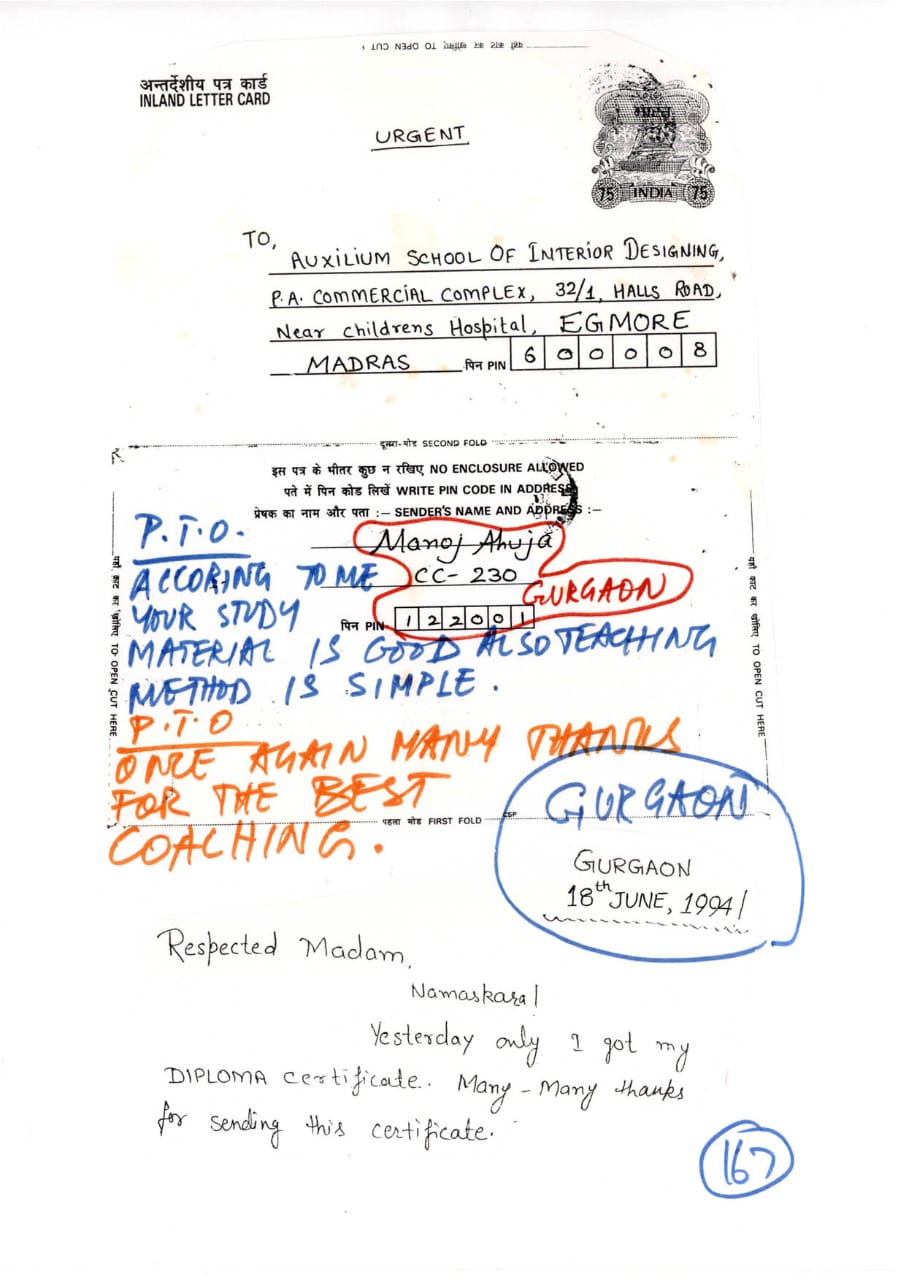 यहाँ काट कर खोलिए TO OPEN CUT
अन्तर्देशीय पत्र कार्ड
INLAND LETTER CARD
URGENT
भारत
75 INDIA 75
TO,
AUXILIUM SCHOOL OF INTERIOR DESIGNING,
P.A. COMMERCIAL COMPLEX, 32/1, HALLS ROAD,
Near childrens Hospital, EGMORE
MADRAS पिन PIN 600008
दूसरा-मोड SECOND FOLD
इस पत्र के भीतर कुछ न रखिए NO ENCLOSURE ALLOWED
पते में पिन कोड लिखें WRITE PIN CODE IN ADDRESS
प्रेषक का नाम और पता :— SENDER'S NAME AND ADDRESS :—
P.T.O.
Manoj Ahuja
ACCORING TO ME
CC-230
GURGAON
YOUR STUDY
पिन PIN 122001
MATERIAL IS GOOD ALSO TEACHING
METHOD IS SIMPLE.
यहाँ काट कर खोलिए TO OPEN CUT HERE
यहाँ काट कर खोलिए TO OPEN CUT HERE
P.T.O
ONCE AGAIN MANY THANKS
FOR THE BEST
COACHING.
पहला मोड FIRST FOLD
CSP
GURGAON
GURGAON
18th JUNE, 1994/
Respected Madam,
Namaskara/
Yesterday only I got my
DIPLOMA certificate. Many-Many thanks
for sending this certificate.
167